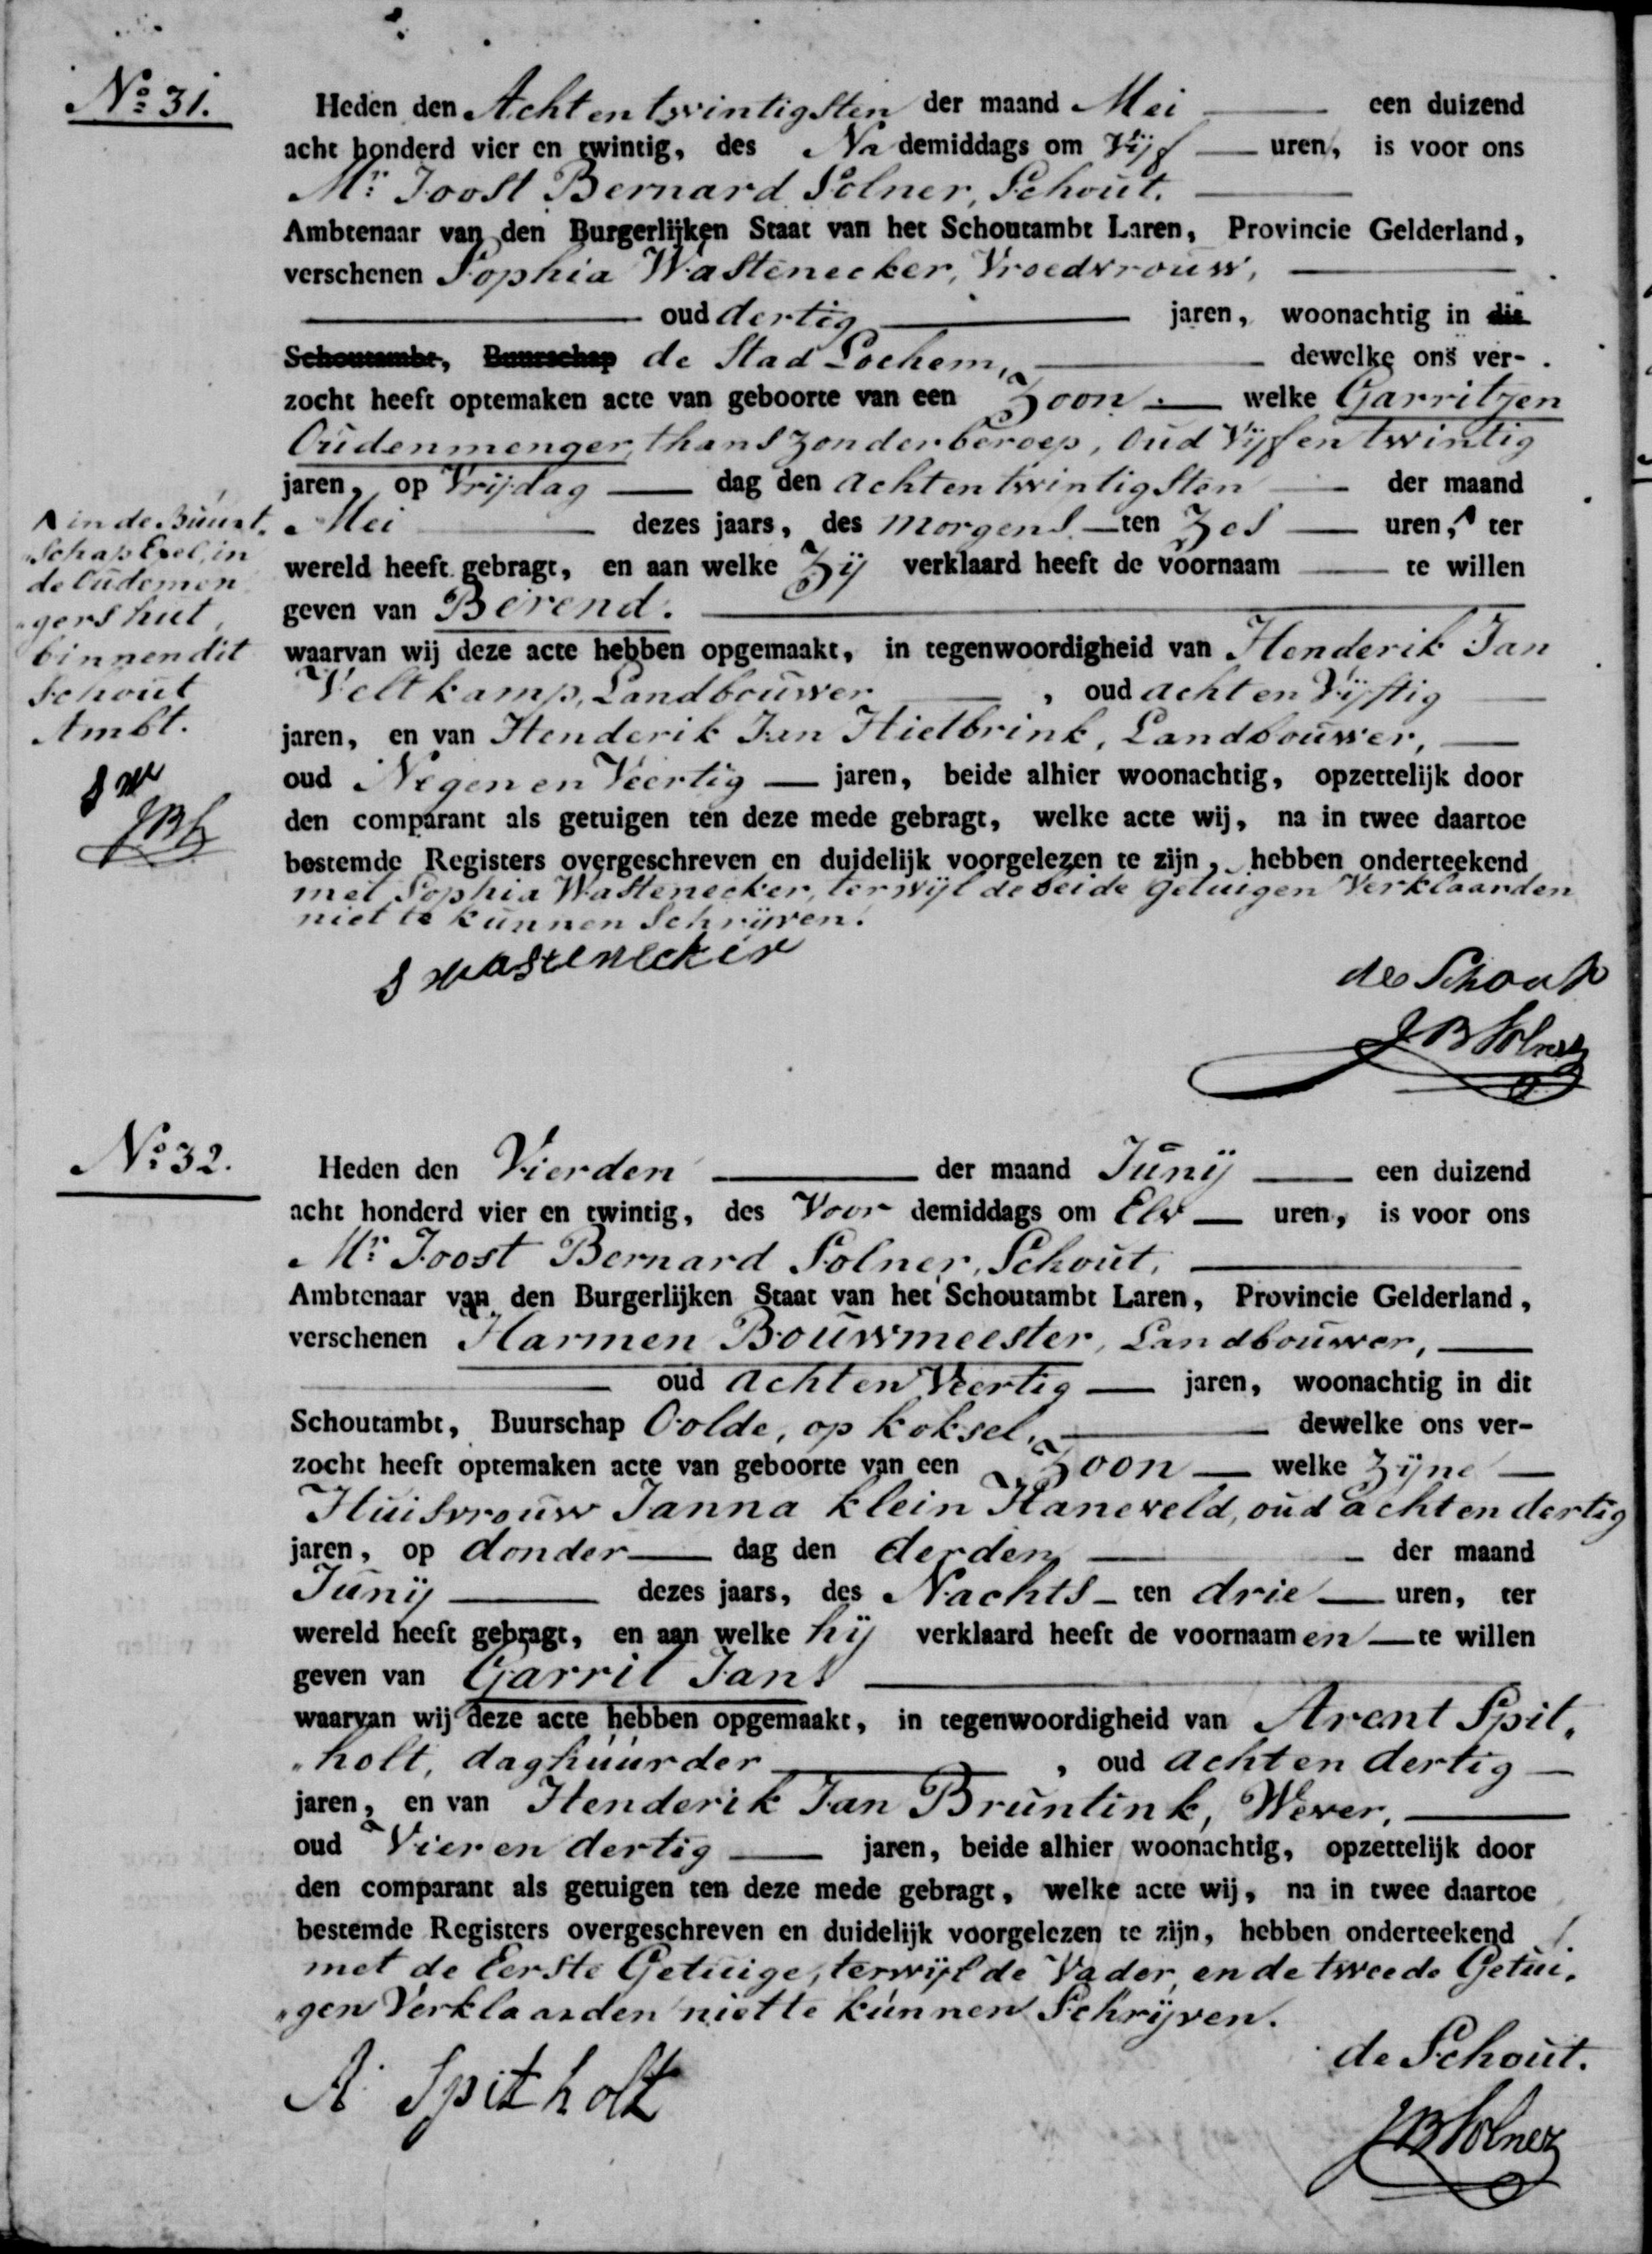 No. 31.
Heden den Acht en twintigsten der maand Mei een duizend
acht honderd vier en twintig, des Na demiddags om Vijf uren, is voor ons
Mr. Joost Bernard Solner, Schout.
Ambtenaar van den Burgerlijken Staat van het Schoutambt Laren, Provincie Gelderland,
verschenen Sophia Wastenecker, Vroedvrouw,
oud dertig jaren, woonachtig in dit
Schoutambt, Buurschap de Stad Lochem, dewelke ons ver-
zocht heeft optemaken acte van geboorte van een Zoon welke Garritjen
Oudenmenger, thans zonder beroep, Oud Vijf en twintig
jaren, op Vrijdag dag den acht en twintigsten der maand
Mei dezes jaars, des morgens ten Zes uren, ter
wereld heeft gebragt, en aan welke Zij verklaard heeft de voornaam te willen
geven van Berend.
waarvan wij deze acte hebben opgemaakt, in tegenwoordigheid van Henderik Jan
Veltkamp, Landbouwer, oud acht en Vijftig
jaren, en van Henderik Jan Hietbrink, Landbouwer,
oud Negen en Veertig jaren, beide alhier woonachtig, opzettelijk door
den comparant als getuigen ten deze mede gebragt, welke acte wij, na in twee daartoe
bestemde Registers overgeschreven en duidelijk voorgelezen te zijn, hebben onderteekend
met Sophia Wastenecker, terwijl de beide Getuigen Verklaarden
niet te kunnen Schrijven.
in de Buurt
Schap Exel, in
de Oudemen
gers hut,
binnen dit
Schout
Ambt.
S W
JBS
S wastenecker
de Schout
JB Solner
No. 32.
Heden den Vierden der maand Junij een duizend
acht honderd vier en twintig, des Voor demiddags om Elv uren, is voor ons
Mr. Joost Bernard Solner, Schout,
Ambtenaar van den Burgerlijken Staat van het Schoutambt Laren, Provincie Gelderland,
verschenen Harmen Bouwmeester, Landbouwer,
oud acht en Veertig jaren, woonachtig in dit
Schoutambt, Buurschap Oolde, op koksel, dewelke ons ver-
zocht heeft optemaken acte van geboorte van een Zoon welke Zijne
Huisvrouw Janna klein Haneveld, oud acht en dertig
jaren, op donder dag den derden der maand
Junij dezes jaars, des Nachts ten drie uren, ter
wereld heeft gebragt, en aan welke hij verklaard heeft de voornaamen te willen
geven van Garrit Jan.
waarvan wij deze acte hebben opgemaakt, in tegenwoordigheid van Arent Spit„
„holt, daghuurder, oud acht en dertig
jaren, en van Henderik Jan Bruntink, Wever,
oud Vier en dertig jaren, beide alhier woonachtig, opzettelijk door
den comparant als getuigen ten deze mede gebragt, welke acte wij, na in twee daartoe
bestemde Registers overgeschreven en duidelijk voorgelezen te zijn, hebben onderteekend
met de Eerste Getuige, terwijl de Vader en de tweede Getui„
„gen Verklaarden niet te kunnen Schrijven.
A. Spitholt
de Schout.
JB Solner